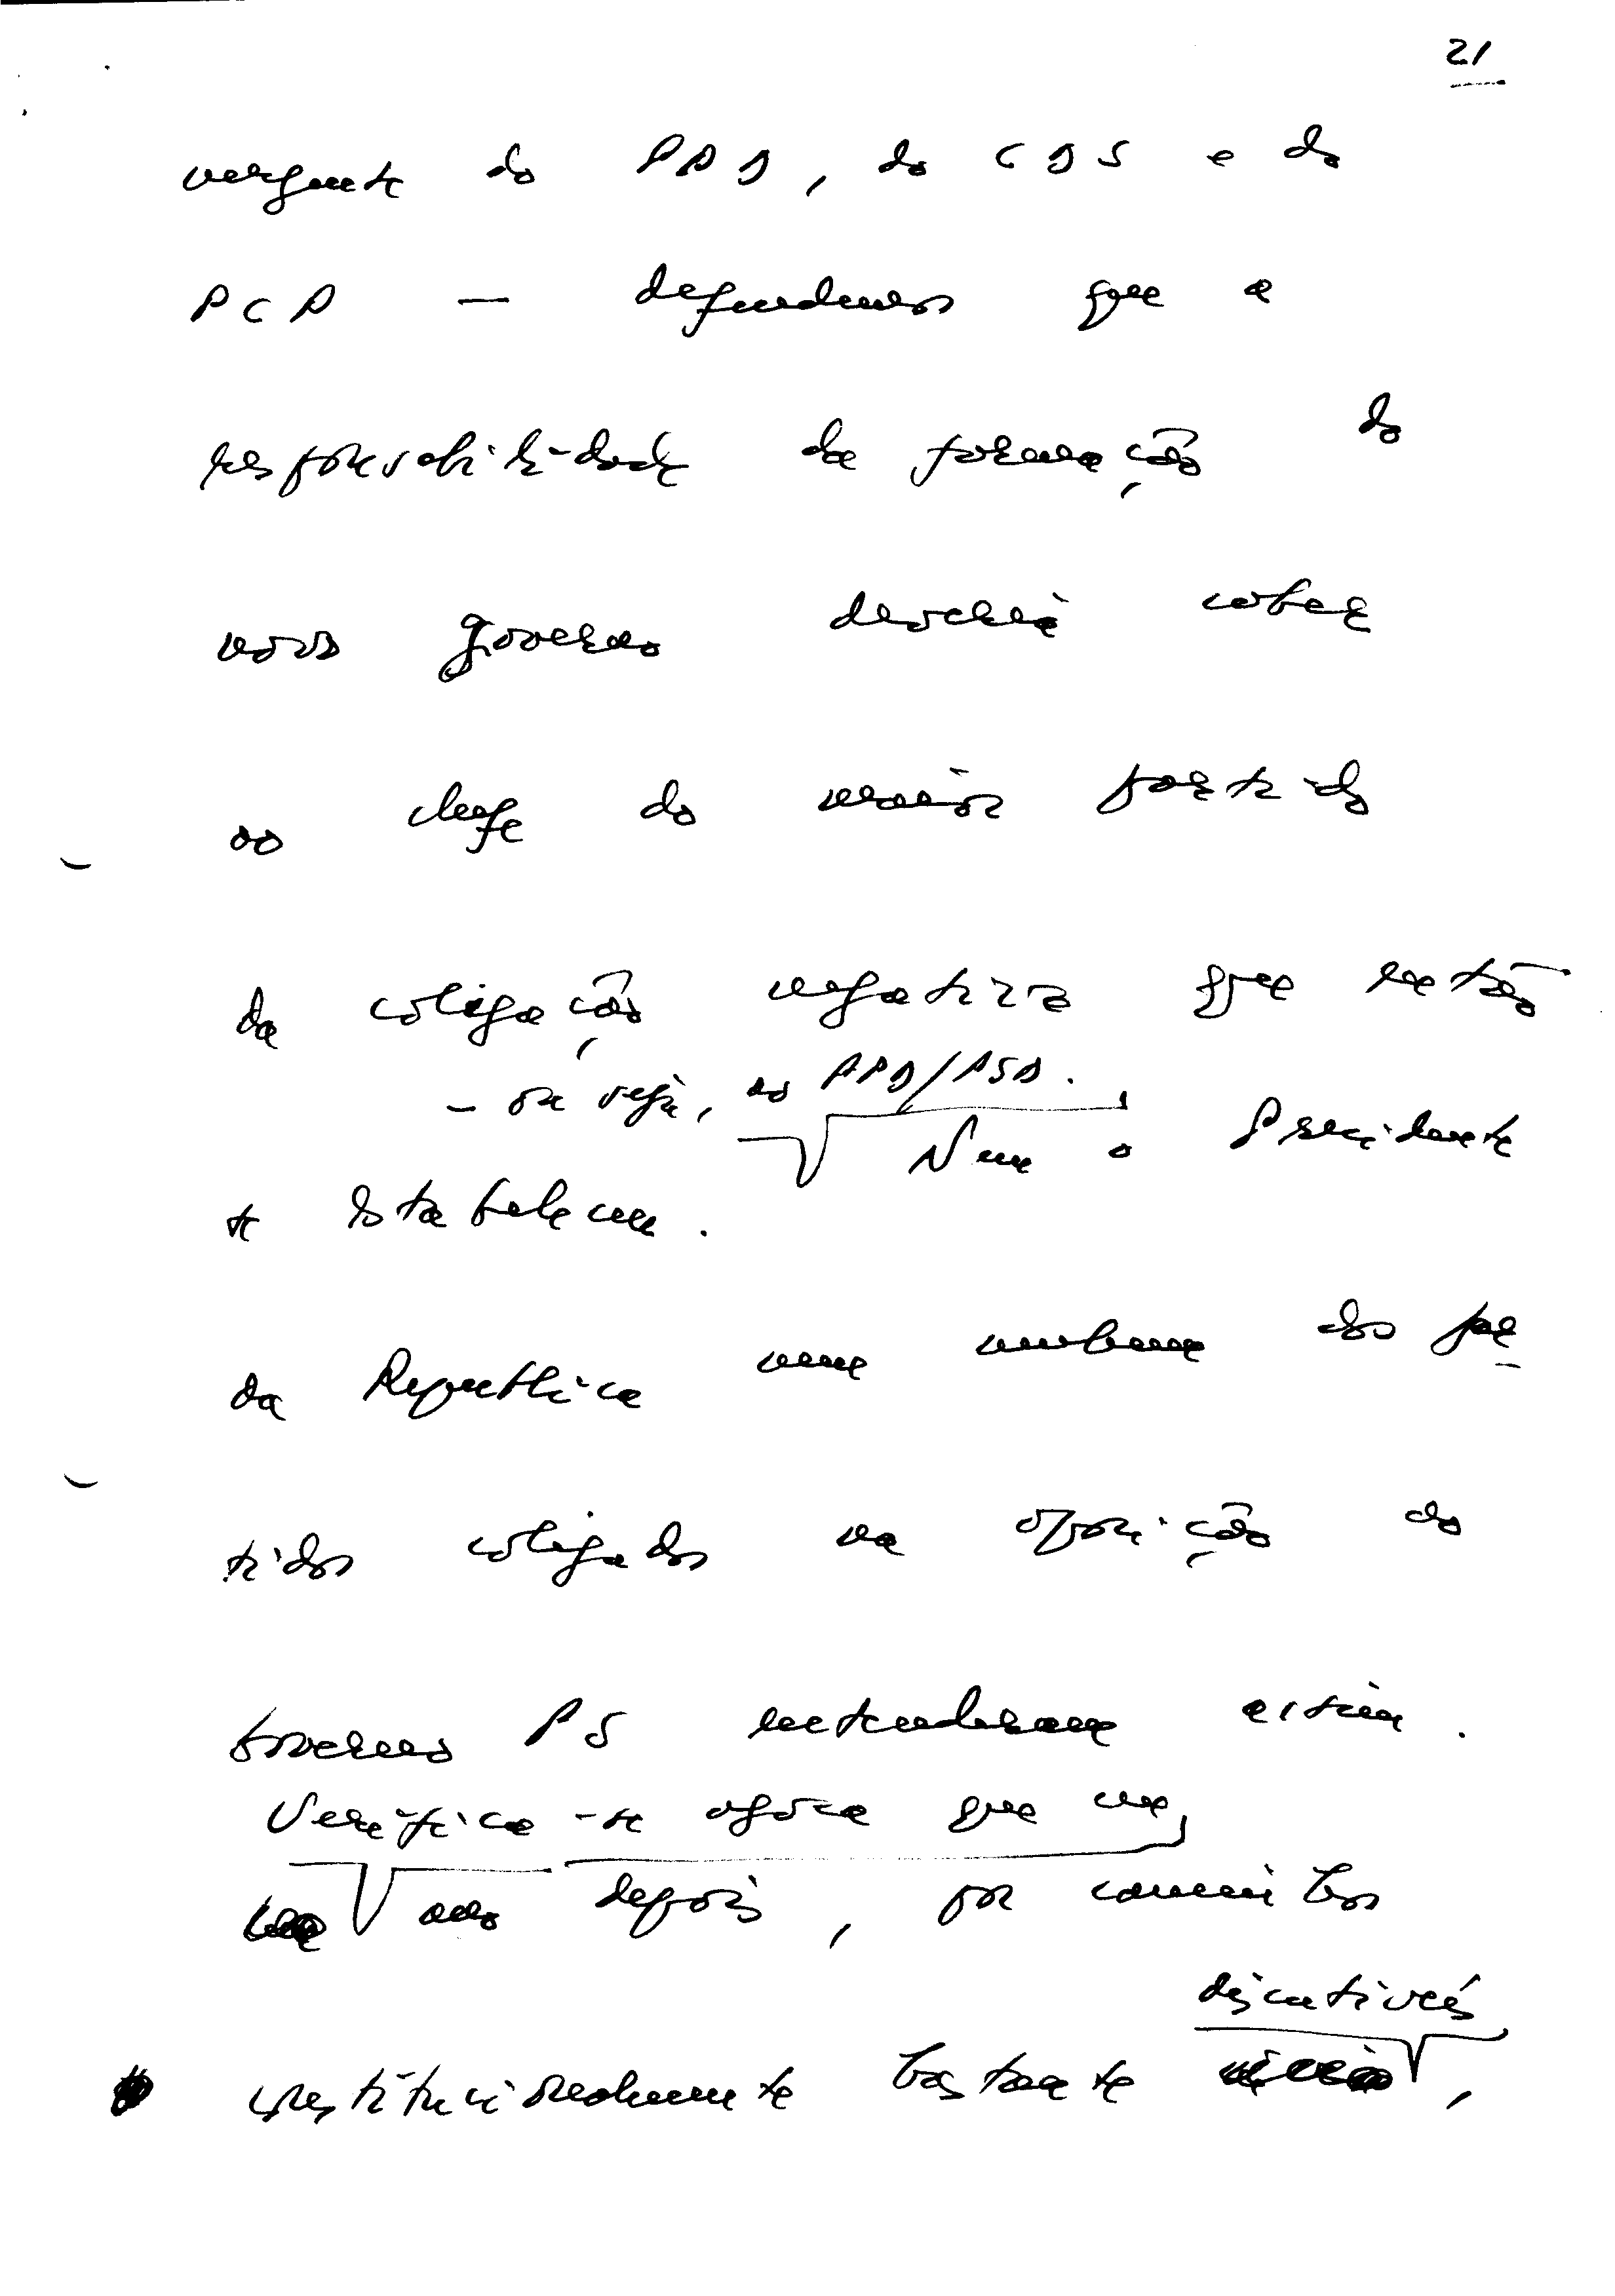 21
vergente do PPD, do CDS e do
PCP — defendemos que a
responsabilidade da formação do
novo governo deveria caber
ao chefe do maior partido
da coligação negativa que então
- ou seja, ao PPD/PSD.
se estabeleceu. Nem o Presidente
da República nem nenhum dos par
tidos coligados na oposição ao
Governo PS entenderam assim.
Verifica-se agora que um
ano depois, por caminhos
discutíveis
constitucionalmente bastante ,